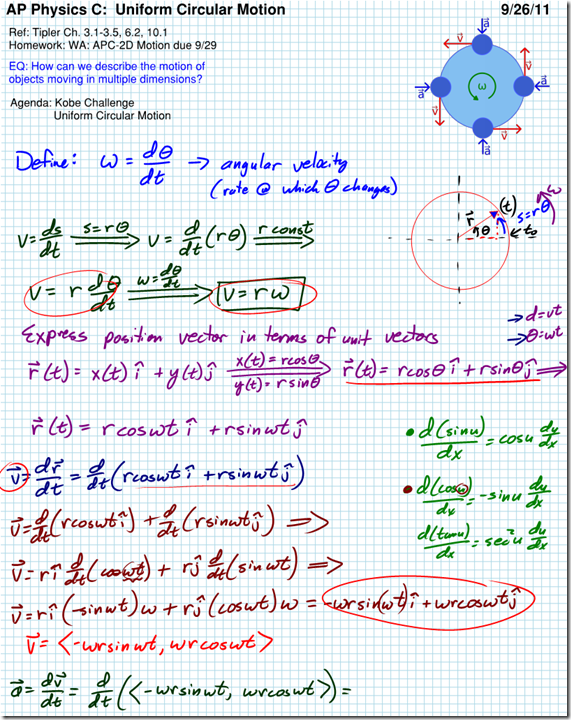 AP Physics C: Uniform Circular Motion 9/26/11
Ref: Tipler Ch. 3.1-3.5, 6.2, 10.1
Homework: WA: APC-2D Motion due 9/29
EQ: How can we describe the motion of
objects moving in multiple dimensions?
Agenda: Kobe Challenge
Uniform Circular Motion
a⃗
v⃗
v⃗
a⃗
ω
a⃗
v⃗
v⃗
a⃗
Define: ω = dθ/dt → angular velocity
(rate @ which θ changes)
r⃗ θ (t) s=rθ ω t₀
V = ds/dt s=rθ ⟹ V = d/dt (rθ) r const ⟹
V = r dθ/dt ω=dθ/dt ⟹ V = rω
→ d=vt
→ θ=ωt
Express position vector in terms of unit vectors
r⃗(t) = x(t) î + y(t) ĵ x(t)=rcosθ ⟹ y(t)=rsinθ r⃗(t) = rcosθ î + rsinθ ĵ ⟹
r⃗(t) = rcosωt î + rsinωt ĵ
• d(sinu)/dx = cosu du/dx
v⃗ = dr⃗/dt = d/dt (rcosωt î + rsinωt ĵ)
• d(cosu)/dx = -sinu du/dx
v⃗ = d/dt (rcosωt î) + d/dt (rsinωt ĵ) ⟹
d(tanu)/dx = sec²u du/dx
v⃗ = r î d/dt (cosωt) + r ĵ d/dt (sinωt) ⟹
v⃗ = r î (-sinωt) ω + r ĵ (cosωt) ω = -ωrsin(ωt) î + ωrcosωt ĵ
v⃗ = <-ωrsinωt, ωrcosωt>
a⃗ = dv⃗/dt = d/dt (<-ωrsinωt, ωrcosωt>) =